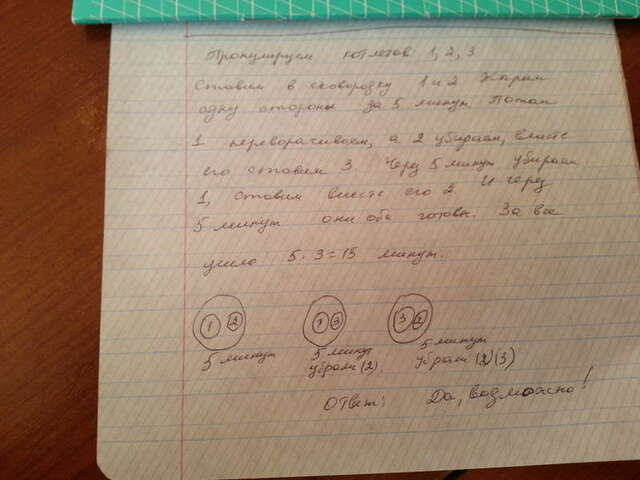 Пронумеруем котлетов: 1, 2, 3
Ставим в сковородку 1 и 2 Жарим
одну стороны за 5 минут. Потом
1 переворачиваем, а 2 убираем, вместе
его ставим 3. Через 5 минут убираем
1, ставим вместе его 2. И через
5 минут они оба готовы. За все
ушло 5 · 3 = 15 минут.
1 2 1 3 3 2
5 минут 5 минут 5 минут
убрали (2), убрали (2)(3)
Ответ: Да, возможно!